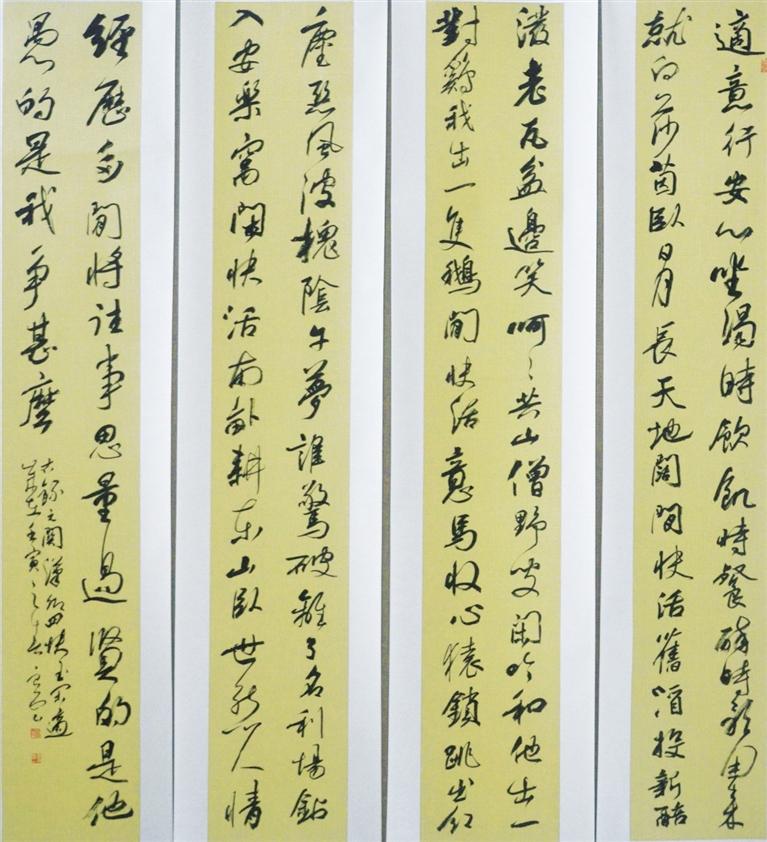 適意行安心坐渴時飲飢時餐醉時歌困來
就向莎茵臥日月長天地闊閒快活舊酒投新醅
潑老瓦盆邊笑呵〻共山僧野叟闲吟和他出一
對鷄我出一隻鵝閒快活意馬收心猿鎖跳出紅
塵惡風波槐陰午夢誰驚破離了名利場鉆
入安樂窩閑快活南畝耕東山臥世態人情
經歷多閒將往事思量過賢的是他
愚的是我爭甚麼
右錄元關漢卿四塊玉閑適
壬寅之春